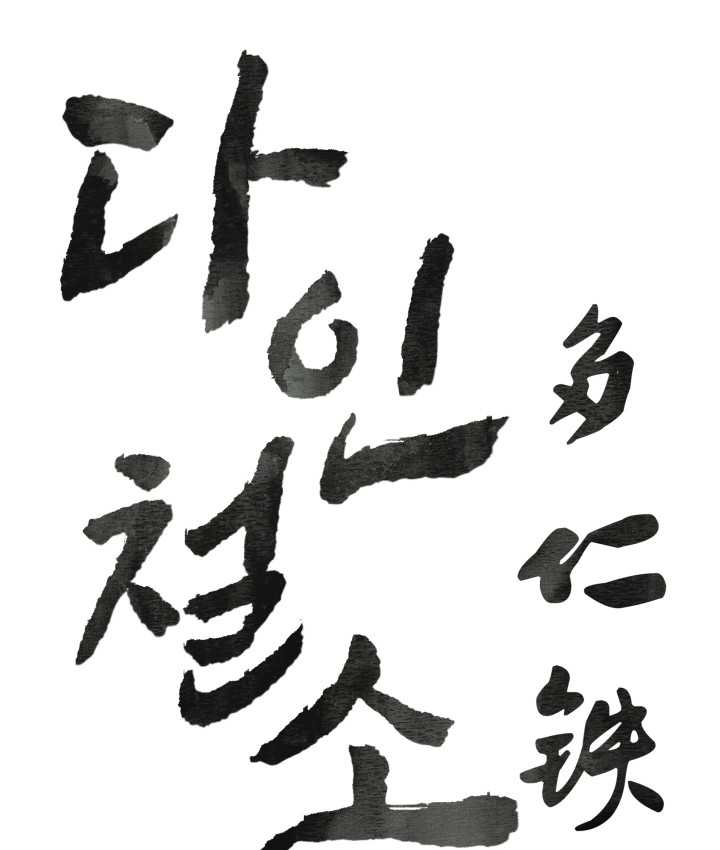 다인철소
多仁铁